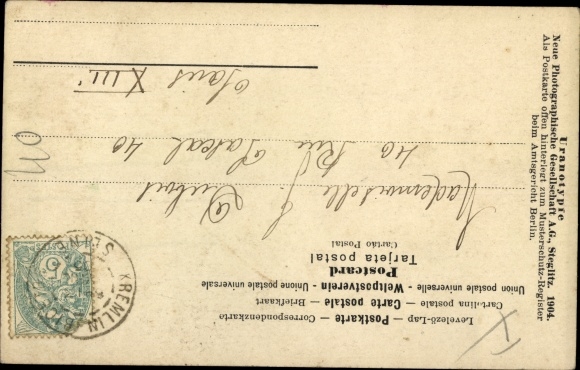 Uranotypie
Neue Photographische Gesellschaft A.G., Steglitz. 1904.
Als Postkarte offen hinterlegt zum Musterschutz-Register
beim Amtsgericht Berlin.
Levelező-Lap — Postkarte — Correspondenzkarte
Cartolina postale — Carte postale — Briefkaart
Union postale universelle - Weltpostverein - Unione postale universale
Postcard
Tarjeta postal
Cartão Postal
Mademoiselle J Dubois
40 Rue Pascal 40
Paris XIII
40
KREMLIN
X